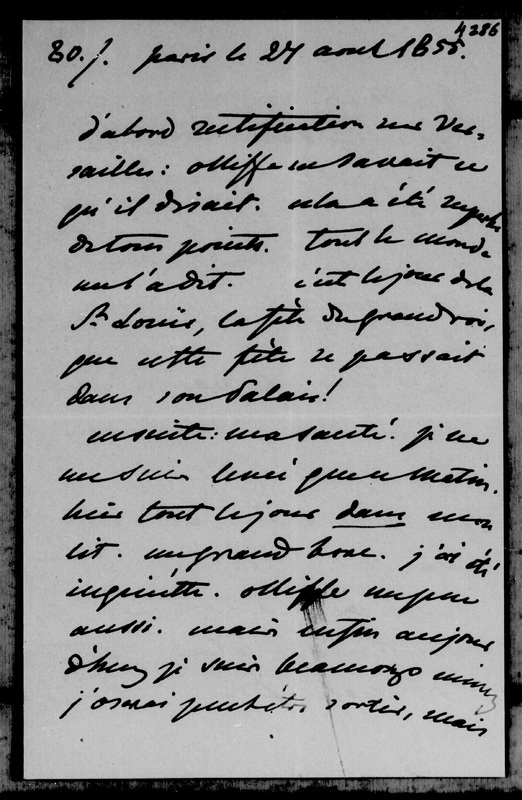 4286
80./. paris le 27 aout 1855.
d'abord rectification sur Ver-
sailles: Olliffe ne savait ce
qu'il disait. cela a été superbe
de tous points. tout le monde
me l'a dit. c'est le jour de la
St Louis, la fête du grand roi,
que cette fête se passait
dans son Palais!
ensuite: ma santé. je ne
me suis levée que ce matin.
hier tout le jour dans mon
lit. un grand
j'ai été
inquiète. Olliffe un peu
aussi. mais enfin aujour
d'huy je suis beaucoup mieux
j'oserai peut être sortir, mais